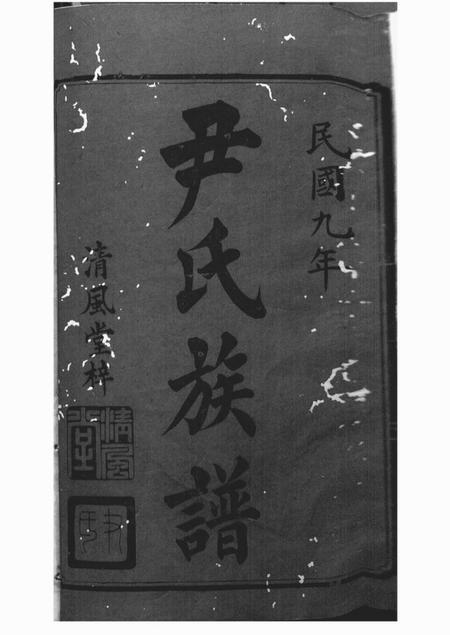 民國九年
尹氏族譜
清風堂梓
清風堂
尹氏